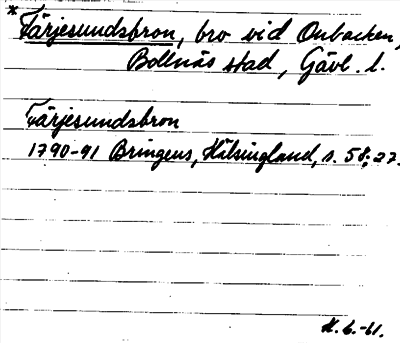 * Färjesundsbron, bro vid Onbacken,
Bollnäs stad, Gävl. l.
Färjesundsbron
1790-91 Bringeus, Hälsingland, s. 58, 27.
H. G. -61.